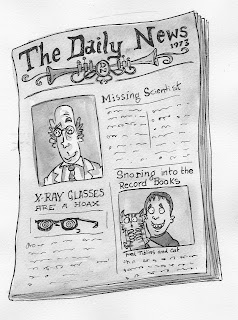 The Daily News
1973
Missing Scientist
X-RAY GLASSES
ARE A HOAX
Snoring into the
Record Books
and Cat